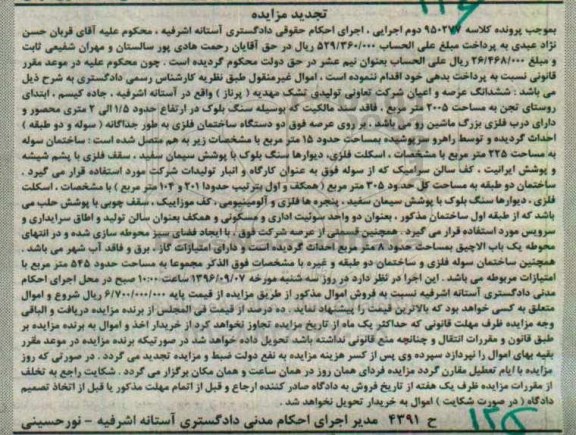 تجدید مزایده
بموجب پرونده کلاسه ۹۵۰۲۷۷ دوم اجرایی ، اجرای احکام حقوقی دادگستری آستانه اشرفیه ، محکوم علیه آقای قربان حسن
نژاد عبدی به پرداخت مبلغ علی الحساب ۵۲۹/۳۶۰/۰۰۰ ریال در حق آقایان رحمت هادی پور سالستان و مهران شفیعی ثابت
و مبلغ ۲۶/۴۶۸/۰۰۰ ریال علی الحساب بعنوان نیم عشر در حق دولت محکوم گردیده است . چون محکوم علیه در موعد مقرر
قانونی نسبت به پرداخت بدهی خود اقدام ننموده است ، اموال غیرمنقول طبق نظریه کارشناس رسمی دادگستری به شرح ذیل
می باشد : ششدانگ عرصه و اعیان شرکت تعاونی تولیدی تشک مهدیه ( پرناز ) واقع در آستانه اشرفیه ، جاده کیسم ، ابتدای
روستای تجن به مساحت ۲۰۰۵ متر مربع ، فاقد سند مالکیت که بوسیله سنگ بلوک در ارتفاع حدود ۱/۵ الی ۲ متری محصور و
دارای درب فلزی بزرگ ماشین رو می باشد . بر روی عرصه فوق دو دستگاه ساختمان فلزی به طور جداگانه ( سوله و دو طبقه )
احداث گردیده و توسط راهرو سرپوشیده بمساحت حدود ۱۵ متر مربع با مشخصات زیر به هم متصل شده است : ساختمان سوله
به مساحت ۲۲۵ متر مربع با مشخصات ، اسکلت فلزی، دیوارها سنگ بلوک با پوشش سیمان سفید ، سقف فلزی با پشم شیشه
و پوشش ایرانیت ، کف سالن سرامیک که از سوله فوق به عنوان کارگاه و انبار تولیدات شرکت مورد استفاده قرار می گیرد .
ساختمان دو طبقه به مساحت کل حدود ۳۰۵ متر مربع ( همکف و اول بترتیب حدودا ۲۰۱ و ۱۰۴ متر مربع ) با مشخصات ، اسکلت
فلزی ، دیوارها سنگ بلوک با پوشش سیمان سفید ، پنجره ها فلزی و آلومینیومی ، کف موزاییک ، سقف چوبی با پوشش حلب می
باشد که از طبقه اول ساختمان مذکور ، بعنوان دو واحد سوئیت اداری و مسکونی و همکف بعنوان سالن تولید و اطاق سرایداری و
سرویس مورد استفاده قرار می گیرد . همچنین قسمتی از عرصه شرکت فوق ، با ایجاد فضای سبز محوطه سازی شده و در انتهای
محوطه یک باب الاچیق بمساحت حدود ۸ متر مربع احداث گردیده است و دارای امتیازات گاز ، برق و فاقد آب شهر می باشد .
همچنین ساختمان سوله فلزی و ساختمان دو طبقه و غیره با مشخصات فوق الذکر مجموعا به مساحت حدود ۵۴۵ متر مربع با
امتیازات مربوطه می باشد . این اجرا در نظر دارد در روز سه شنبه مورخه ۱۳۹۶/۰۹/۰۷ ساعت ۱۰:۰۰ صبح در محل اجرای احکام
مدنی دادگستری آستانه اشرفیه نسبت به فروش اموال مذکور از طریق مزایده از قیمت پایه ۶/۷۰۰/۰۰۰/۰۰۰ ریال شروع و اموال
متعلق به کسی خواهد بود که بالاترین قیمت را پیشنهاد نماید . ده درصد از قیمت فی المجلس از برنده مزایده دریافت و الباقی
وجه مزایده ظرف مهلت قانونی که حداکثر یک ماه از تاریخ مزایده تجاوز نخواهد کرد از خریدار اخذ و اموال به برنده مزایده بر
طبق قانون و مقررات انتقال و چنانچه منع قانونی نداشته باشد تحویل داده خواهد شد در صورتیکه برنده مزایده در موعد مقرر
بقیه بهای اموال را نپردازد سپرده وی پس از کسر هزینه مزایده به نفع دولت ضبط و مزایده تجدید می گردد . در صورتی که روز
مزایده با ایام تعطیل مقارن گردد مزایده فردای همان روز در همان ساعت و همان مکان برگزار می گردد . شکایت راجع به تخلف
از مقررات مزایده ظرف یک هفته از تاریخ فروش به دادگاه صادر کننده ارجاع و قبل از اتمام مهلت مذکور یا قبل از اتخاذ تصمیم
دادگاه ( در صورت شکایت ) اموال به خریدار تحویل نخواهد شد .
ح ۴۳۹۱ مدیر اجرای احکام مدنی دادگستری آستانه اشرفیه - نورحسینی